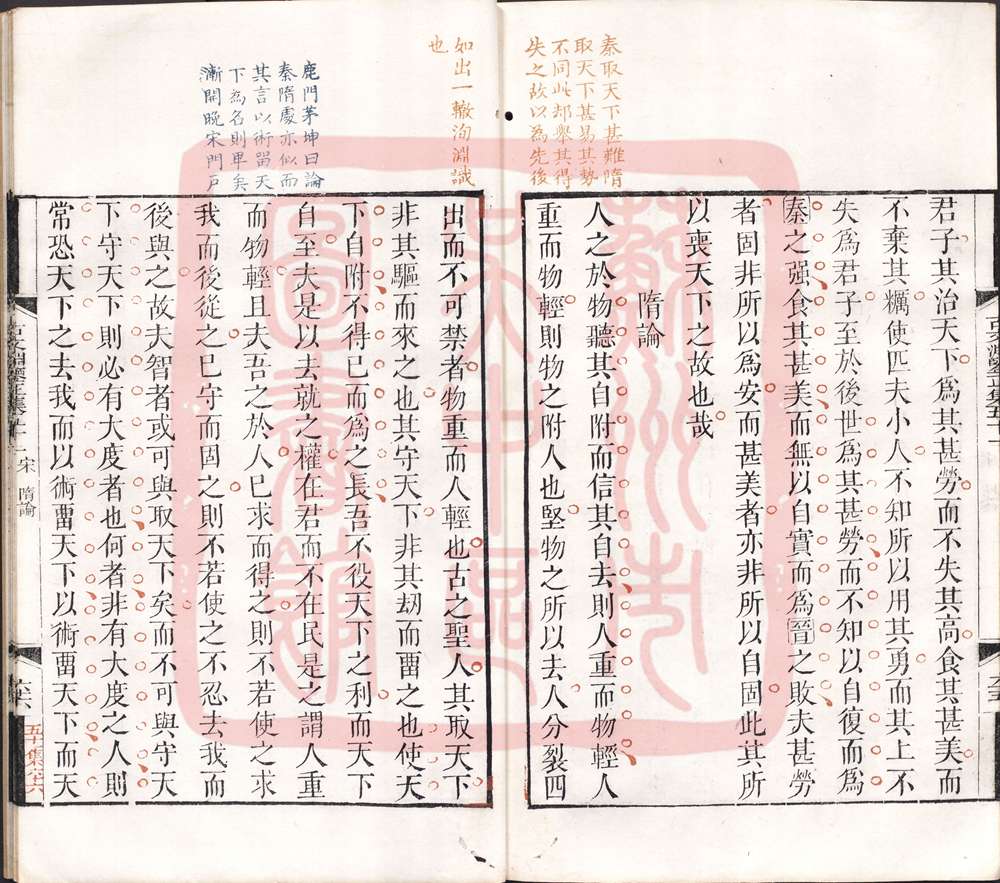 秦取天下甚難隋
取天下甚易其勢
不同此却舉其得
失之故以為先後
君子其治天下爲其甚勞而不失其高食其甚美而
不棄其糲使匹夫小人不知所以用其勇而其上不
失爲君子至於後世爲其甚勞而不知以自復而爲
秦之强食其甚美而無以自實而爲晉之敗夫甚勞
者固非所以爲安而甚美者亦非所以自固此其所
以喪天下之故也哉
隋論
人之於物聽其自附而信其自去則人重而物輕人
重而物輕則物之附人也堅物之所以去人分裂四
如出一轍洵淵識
也
鹿門茅坤曰論
秦隋處亦似而
其言以術留天
下為名則卑矣
漸開晚宋門戶
出而不可禁者物重而人輕也古之聖人其取天下
非其驅而來之也其守天下非其刼而畱之也使天
下自附不得已而爲之長吾不役天下之利而天下
自至夫是以去就之權在君而不在民是之謂人重
而物輕且夫吾之於人已求而得之則不若使之求
我而後從之已守而固之則不若使之不忍去我而
後與之故夫智者或可與取天下矣而不可與守天
下守天下則必有大度者也何者非有大度之人則
常恐天下之去我而以術畱天下以術畱天下而天
宋
隋論
五十一集卷六
蘇州市
吳中區
圖書館